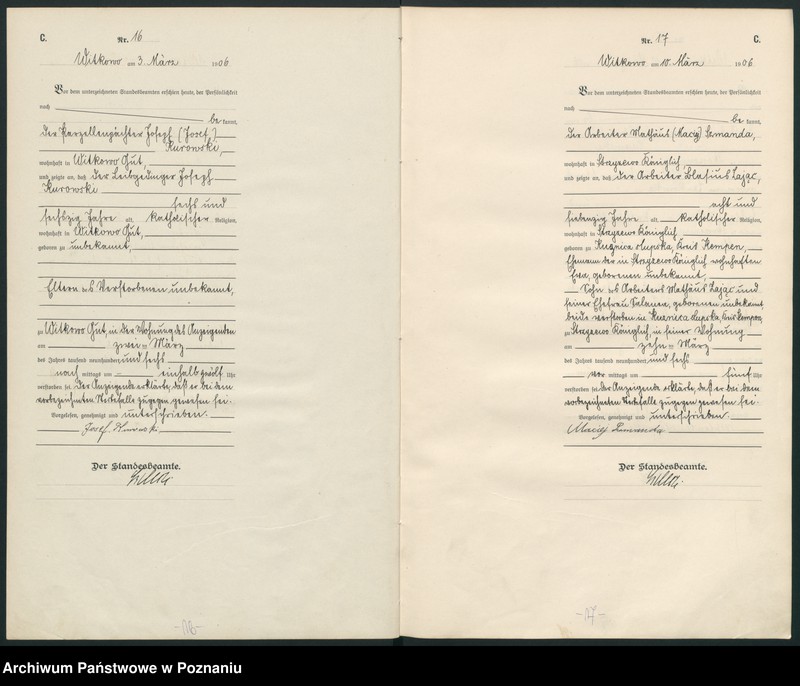 C.
Nr. 16
Witkowo am 3. März 1906
Vor dem unterzeichneten Standesbeamten erschien heute, der Persönlichkeit
nach
be kannt,
der Parzellenpächter Joseph (Josef)
Kurowski,
wohnhaft in Witkowo Gut,
und zeigte an, daß der Leibgedinger Joseph
Kurowski
sechs und
sechszig Jahre alt, katholischer Religion,
wohnhaft in Witkowo Gut,
geboren zu unbekannt,
Eltern des Verstorbenen unbekannt,
zu Witkowo Gut, in der Wohnung des Anzeigenden
am zwei ten März
des Jahres tausend neunhundert und sechs
nach mittags um einhalb zwölf Uhr
verstorben sei. Der Anzeigende erklärte, daß er bei dem
vorbezeichneten Sterbefalle zugegen gewesen sei.
Vorgelesen, genehmigt und unterschrieben.
Josef Kurowski
Der Standesbeamte.
-16-
Nr. 17
C.
Witkowo am 10. März 1906
Vor dem unterzeichneten Standesbeamten erschien heute, der Persönlichkeit
nach
be kannt,
der Arbeiter Mathäus (Maciej) Szmanda,
wohnhaft in Strzyzewo Königlich,
und zeigte an, daß der Arbeiter Blasius Zając,
acht und
siebenzig Jahre alt, katholischer Religion,
wohnhaft in Strzyzewo Königlich,
geboren zu Kuznica Slupska, Kreis Kempen,
Ehemann der in Strzyzewo Königlich wohnhaften
Eva, geborenen unbekannt,
Sohn des Arbeiters Mathäus Zając und
seiner Ehefrau Salomea, geborenen unbekannt
beide verstorben in Kuznica Slupska, Kreis Kempen,
zu Strzyzewo Königlich, in seiner Wohnung
am zehn ten März
des Jahres tausend neunhundert und sechs
vor mittags um fünf Uhr
verstorben sei. Der Anzeigende erklärte, daß er bei dem
vorbezeichneten Sterbefalle zugegen gewesen sei.
Vorgelesen, genehmigt und unterschrieben.
Maciej Szmanda
Der Standesbeamte.
-17-
Archiwum Państwowe w Poznaniu